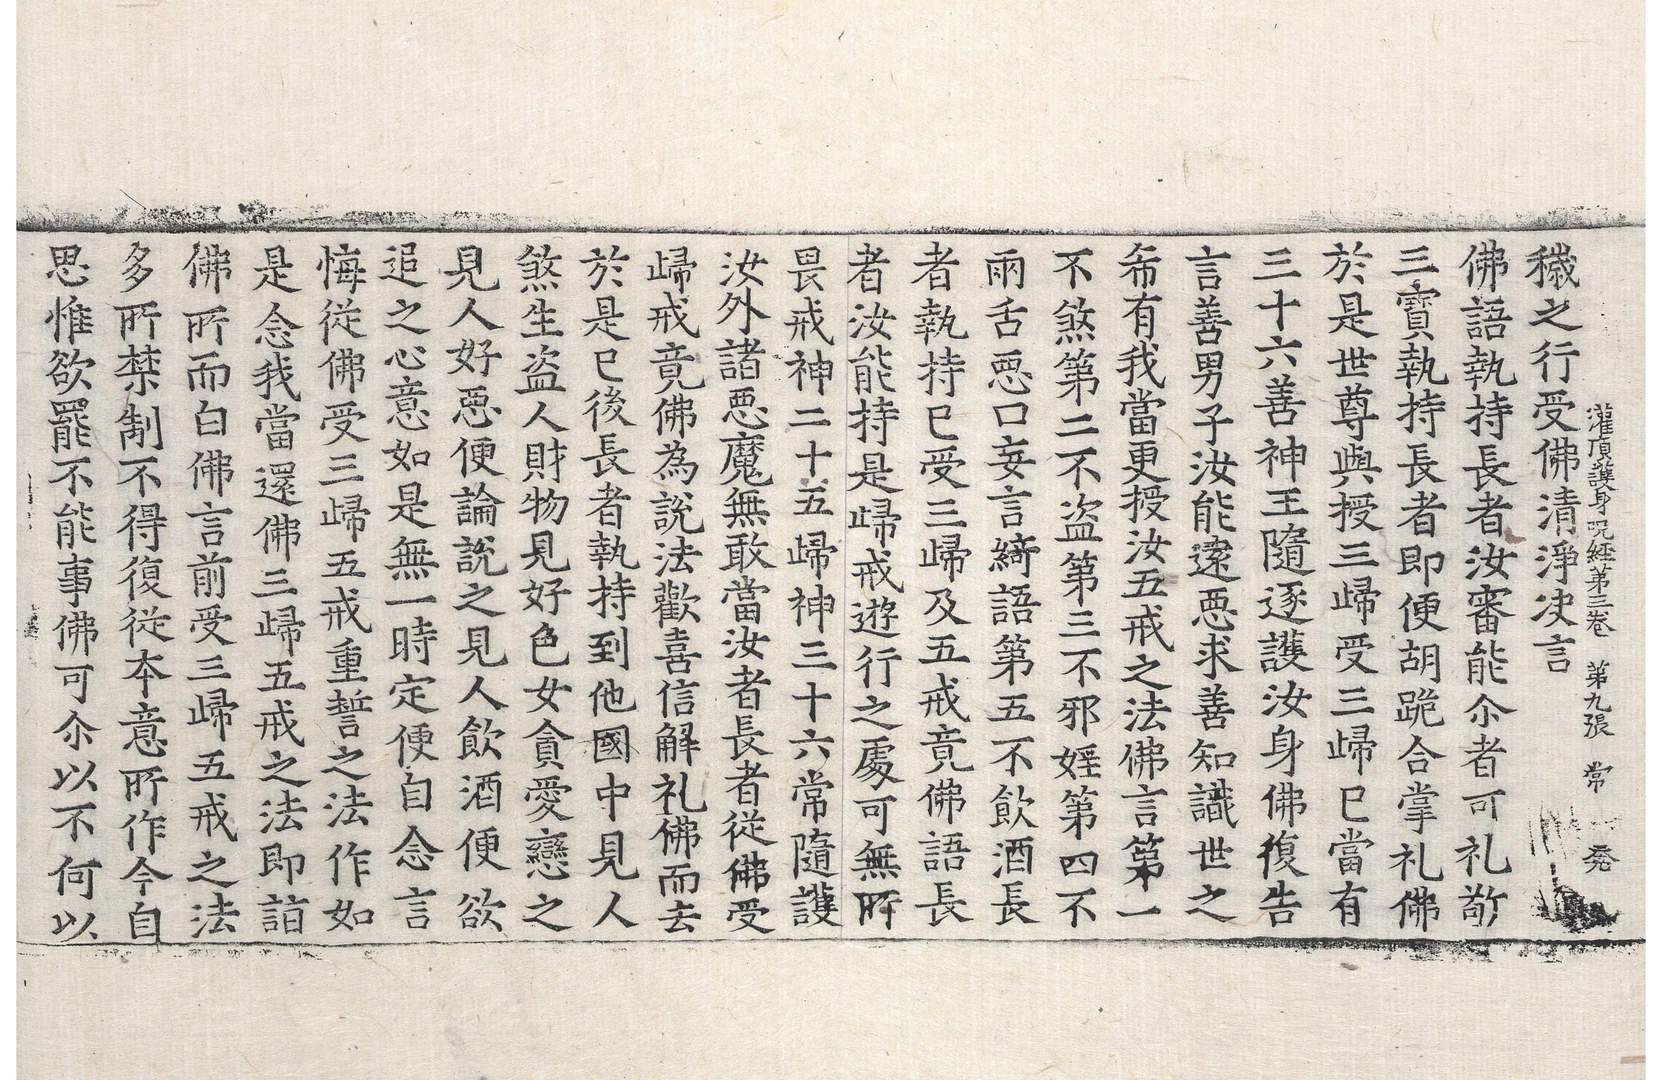 灌頂護身呪經第三卷 第九張 常 發
穢之行受佛清淨决言
佛語執持長者汝審能尒者可礼敬
三寶執持長者即便胡跪合掌礼佛
於是世尊與授三歸受三歸已當有
三十六善神王隨逐護汝身佛復告
言善男子汝能遠惡求善知識世之
希有我當更授汝五戒之法佛言第一
不煞第二不盗第三不邪婬第四不
兩舌惡口妄言綺語第五不飲酒長
者執持已受三歸及五戒竟佛語長
者汝能持是歸戒遊行之處可無所
畏戒神二十五歸神三十六常隨護
汝外諸惡魔無敢當汝者長者從佛受
歸戒竟佛為説法歡喜信解礼佛而去
於是已後長者執持到他國中見人
煞生盗人財物見好色女貪愛戀之
見人好惡便論説之見人飲酒便欲
追之心意如是無一時定便自念言
悔從佛受三歸五戒重誓之法作如
是念我當還佛三歸五戒之法即詣
佛所而白佛言前受三歸五戒之法
多所禁制不得復從本意所作今自
思惟欲罷不能事佛可尒以不何以